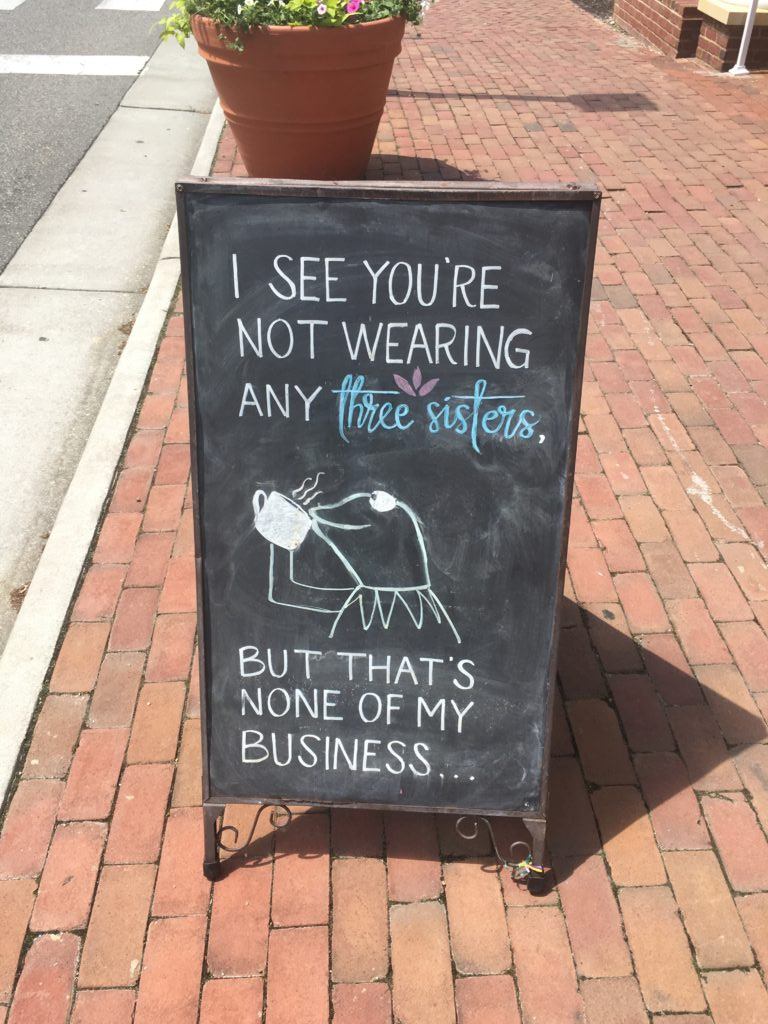 I SEE YOU'RE
NOT WEARING
ANY three sisters,
BUT THAT'S
NONE OF MY
BUSINESS...